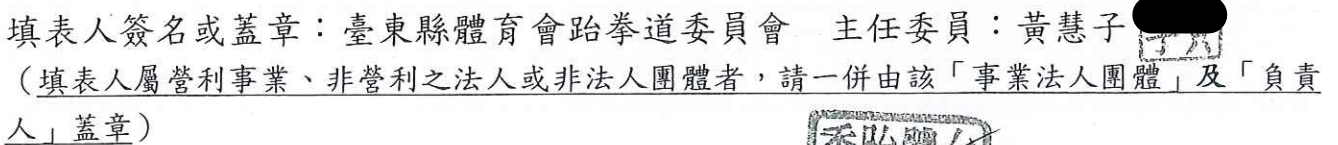 填表人簽名或蓋章：臺東縣體育會跆拳道委員會　主任委員：黃慧子
（填表人屬營利事業、非營利之法人或非法人團體者，請一併由該「事業法人團體」及「負責
人」蓋章）